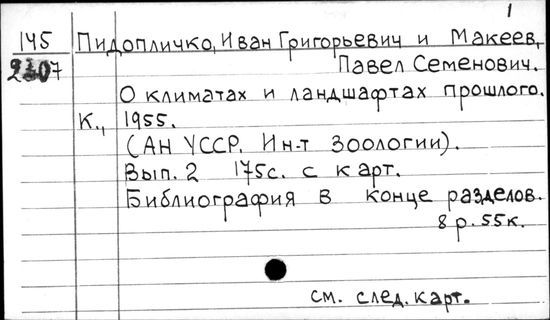 1
145 Пидопличко, Иван Григорьевич и Макеев,
Павел Семенович.
О климатах и ландшафтах прошлого.
К., 1955.
(АН УССР. Ин-т Зоологии).
Вып. 2 175с. с карт.
Библиография в конце разделов.
8 р. 55к.
см. след. карт.